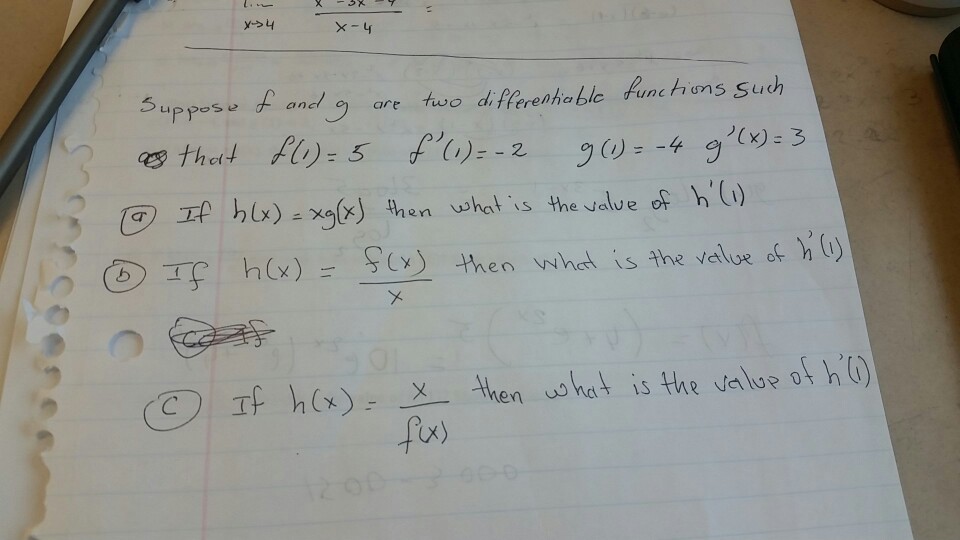 lim x²-3x-4
x→4 x-4 =
Suppose f and g are two differentiable functions such
that f(1)=5 f'(1)=-2 g(1)=-4 g'(x)=3
(a) If h(x) = xg(x) then what is the value of h'(1)
(b) If h(x) = f(x)/x then what is the value of h'(1)
(c) If h(x) = x/f(x) then what is the value of h'(1)